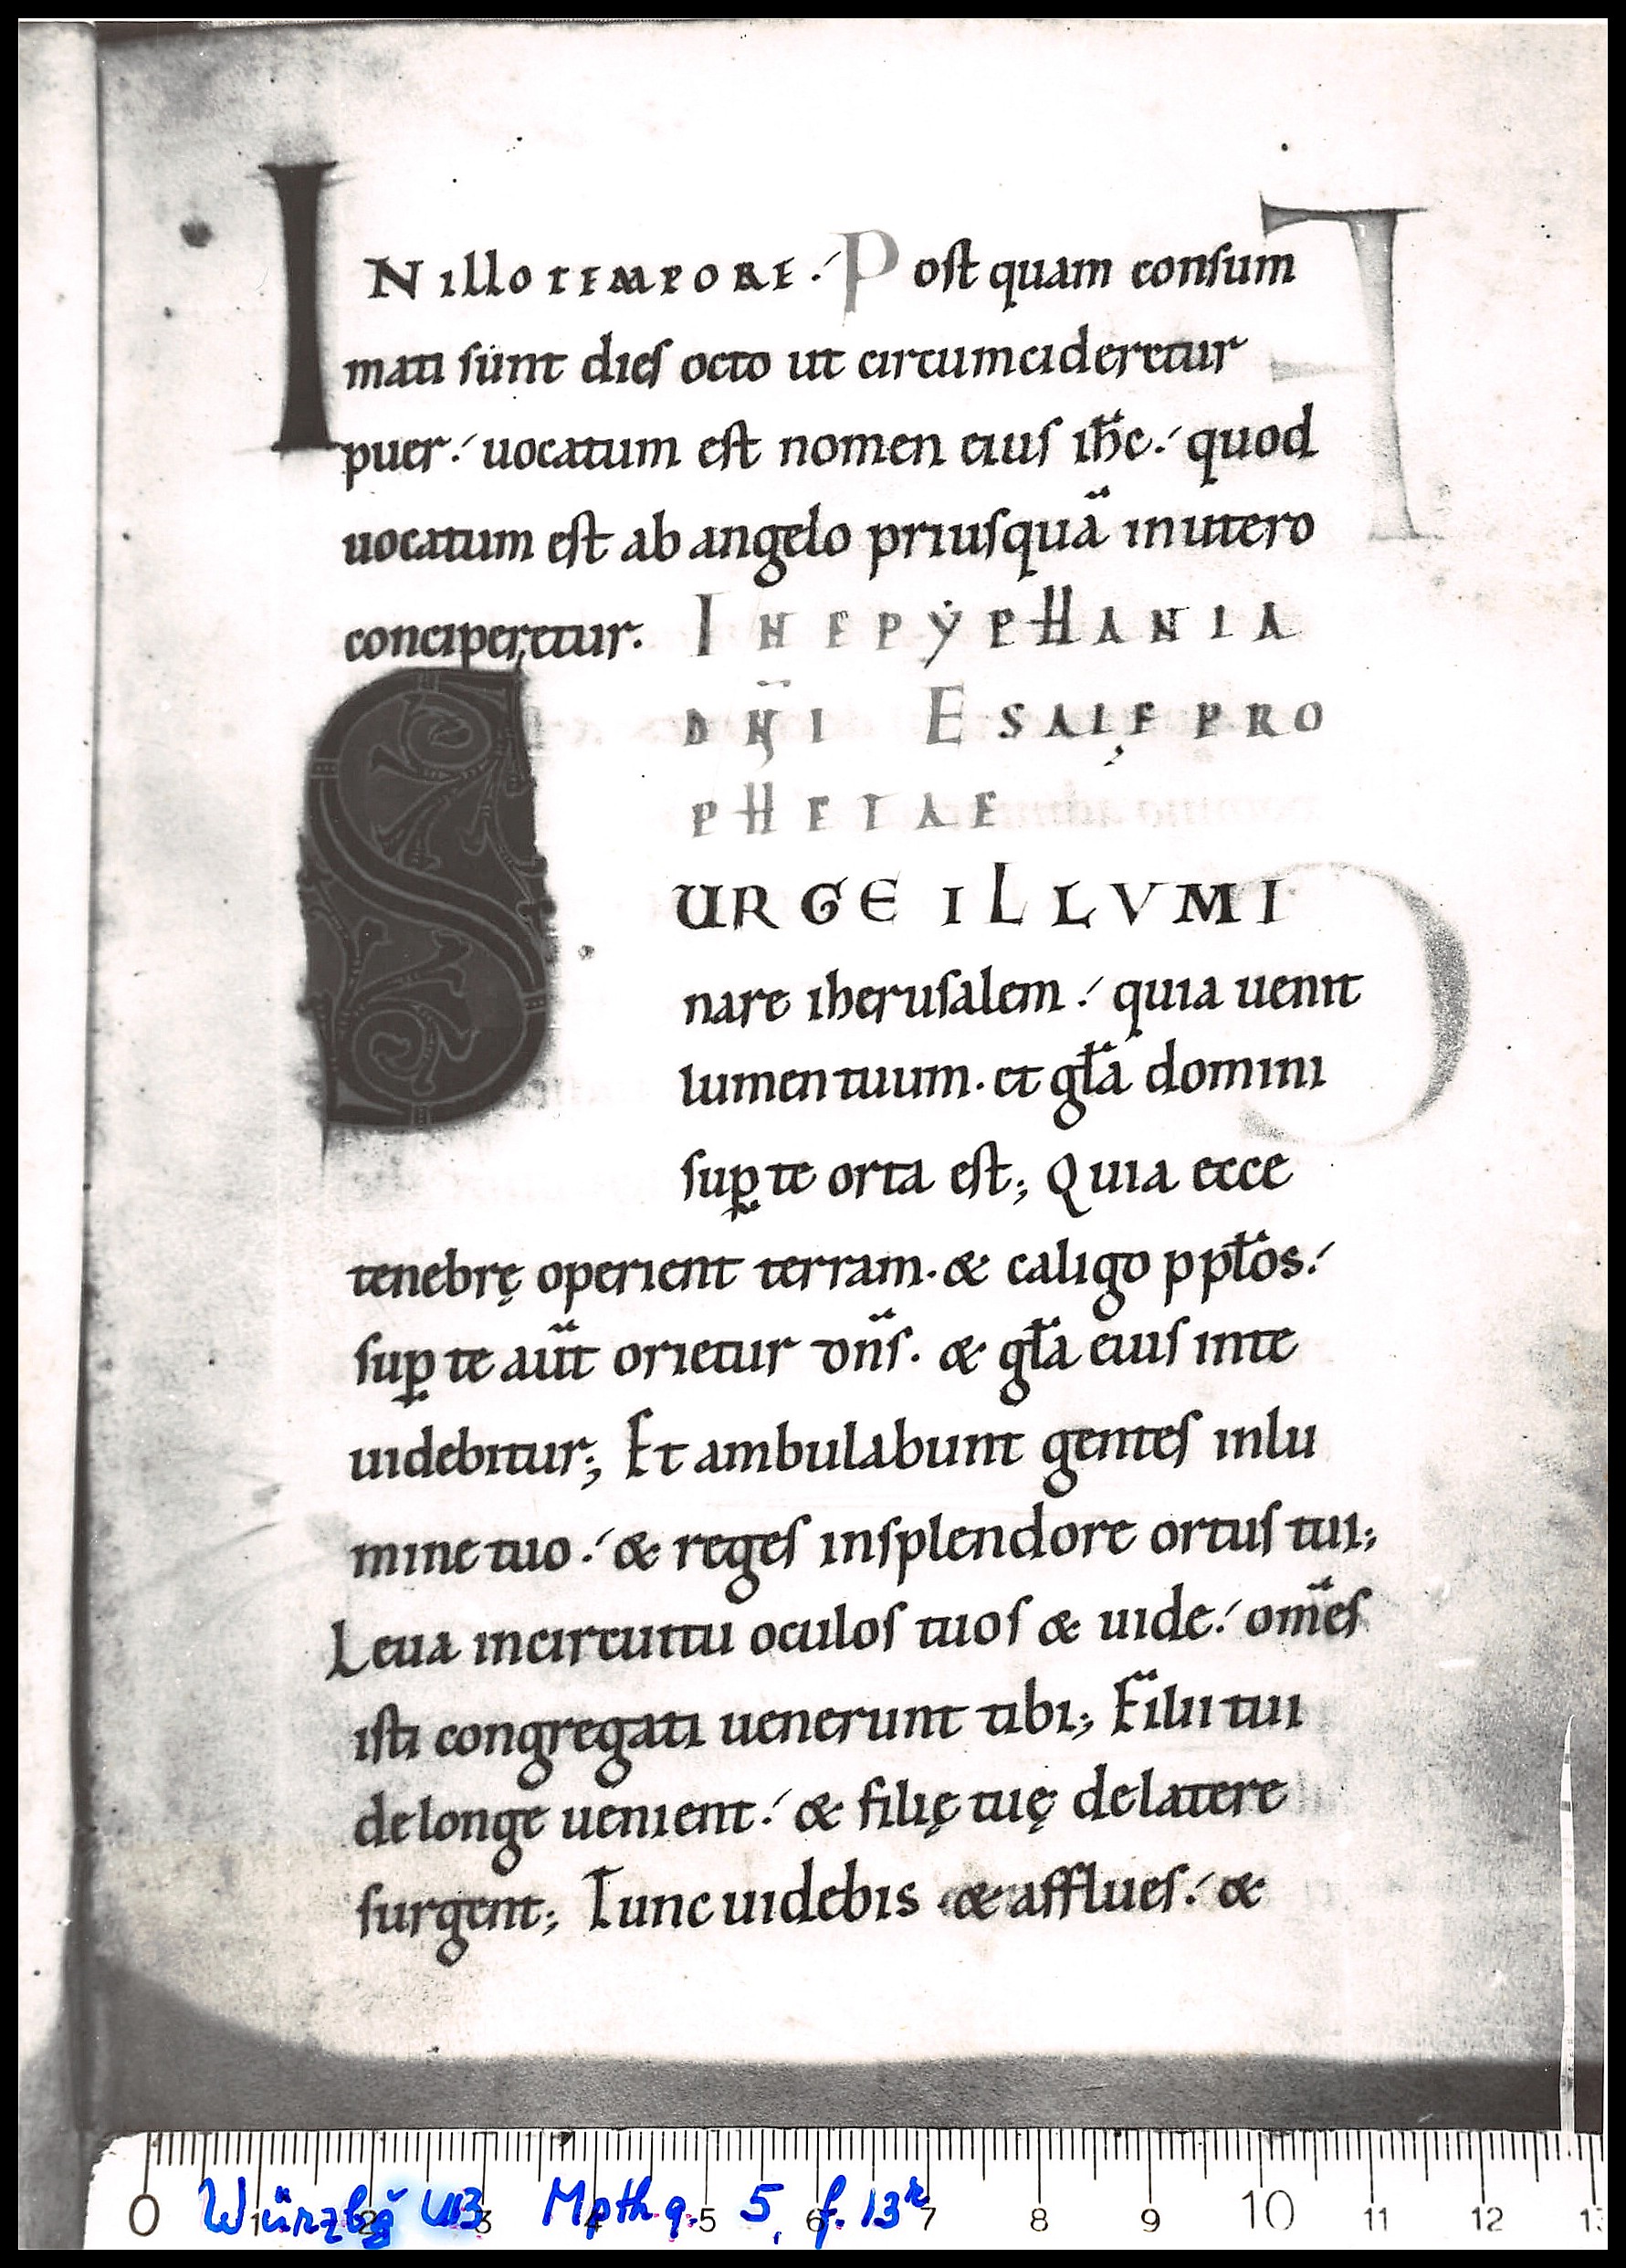 IN illo tempore. Post quam consum
mati sunt dies octo ut circumcideretur
puer. uocatum est nomen eius ihc̄. quod
uocatum est ab angelo priusquā inutero
conciperetur. IN EPYPHANIA
DN̄I ESAIĘ PRO
PHETAE
SURGE ILLVMI
nare iherusalem. quia uenit
lumen tuum. et gła domini
suꝑ te orta est; Quia ecce
tenebrę operient terram. & caligo ppłos.
suꝑ te aūt orietur dn̄s. & gła eius inte
uidebitur; Et ambulabunt gentes inlu
mine tuo. & reges insplendore ortus tui;
Leua incircuitu oculos tuos & uide. om̄es
isti congregati uenerunt tibi; Filii tui
delonge uenient. & filię tuę delatere
surgent; Tunc uidebis & afflues. &
Würzbg UB Mpth.q. 5, f. 13r
0 1 2 3 4 5 6 7 8 9 10 11 12